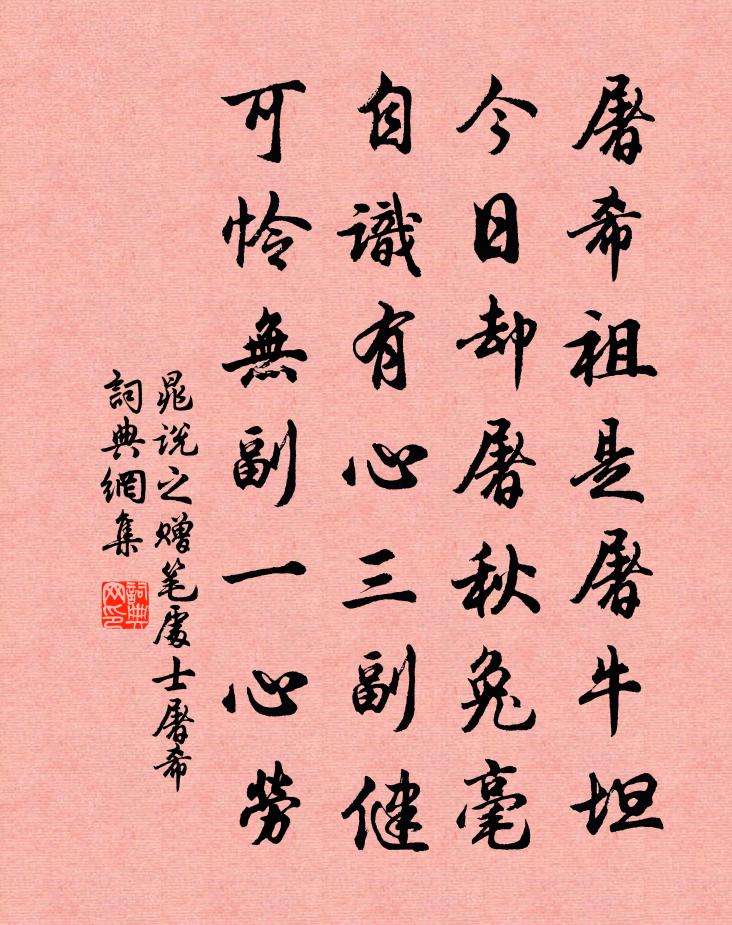 屠希祖是屠牛坦
今日却屠秋兔毫
自識有心三副健
可怜無副一心勞
晁说之赠笔處士屠希
詞典網集
詞典网印